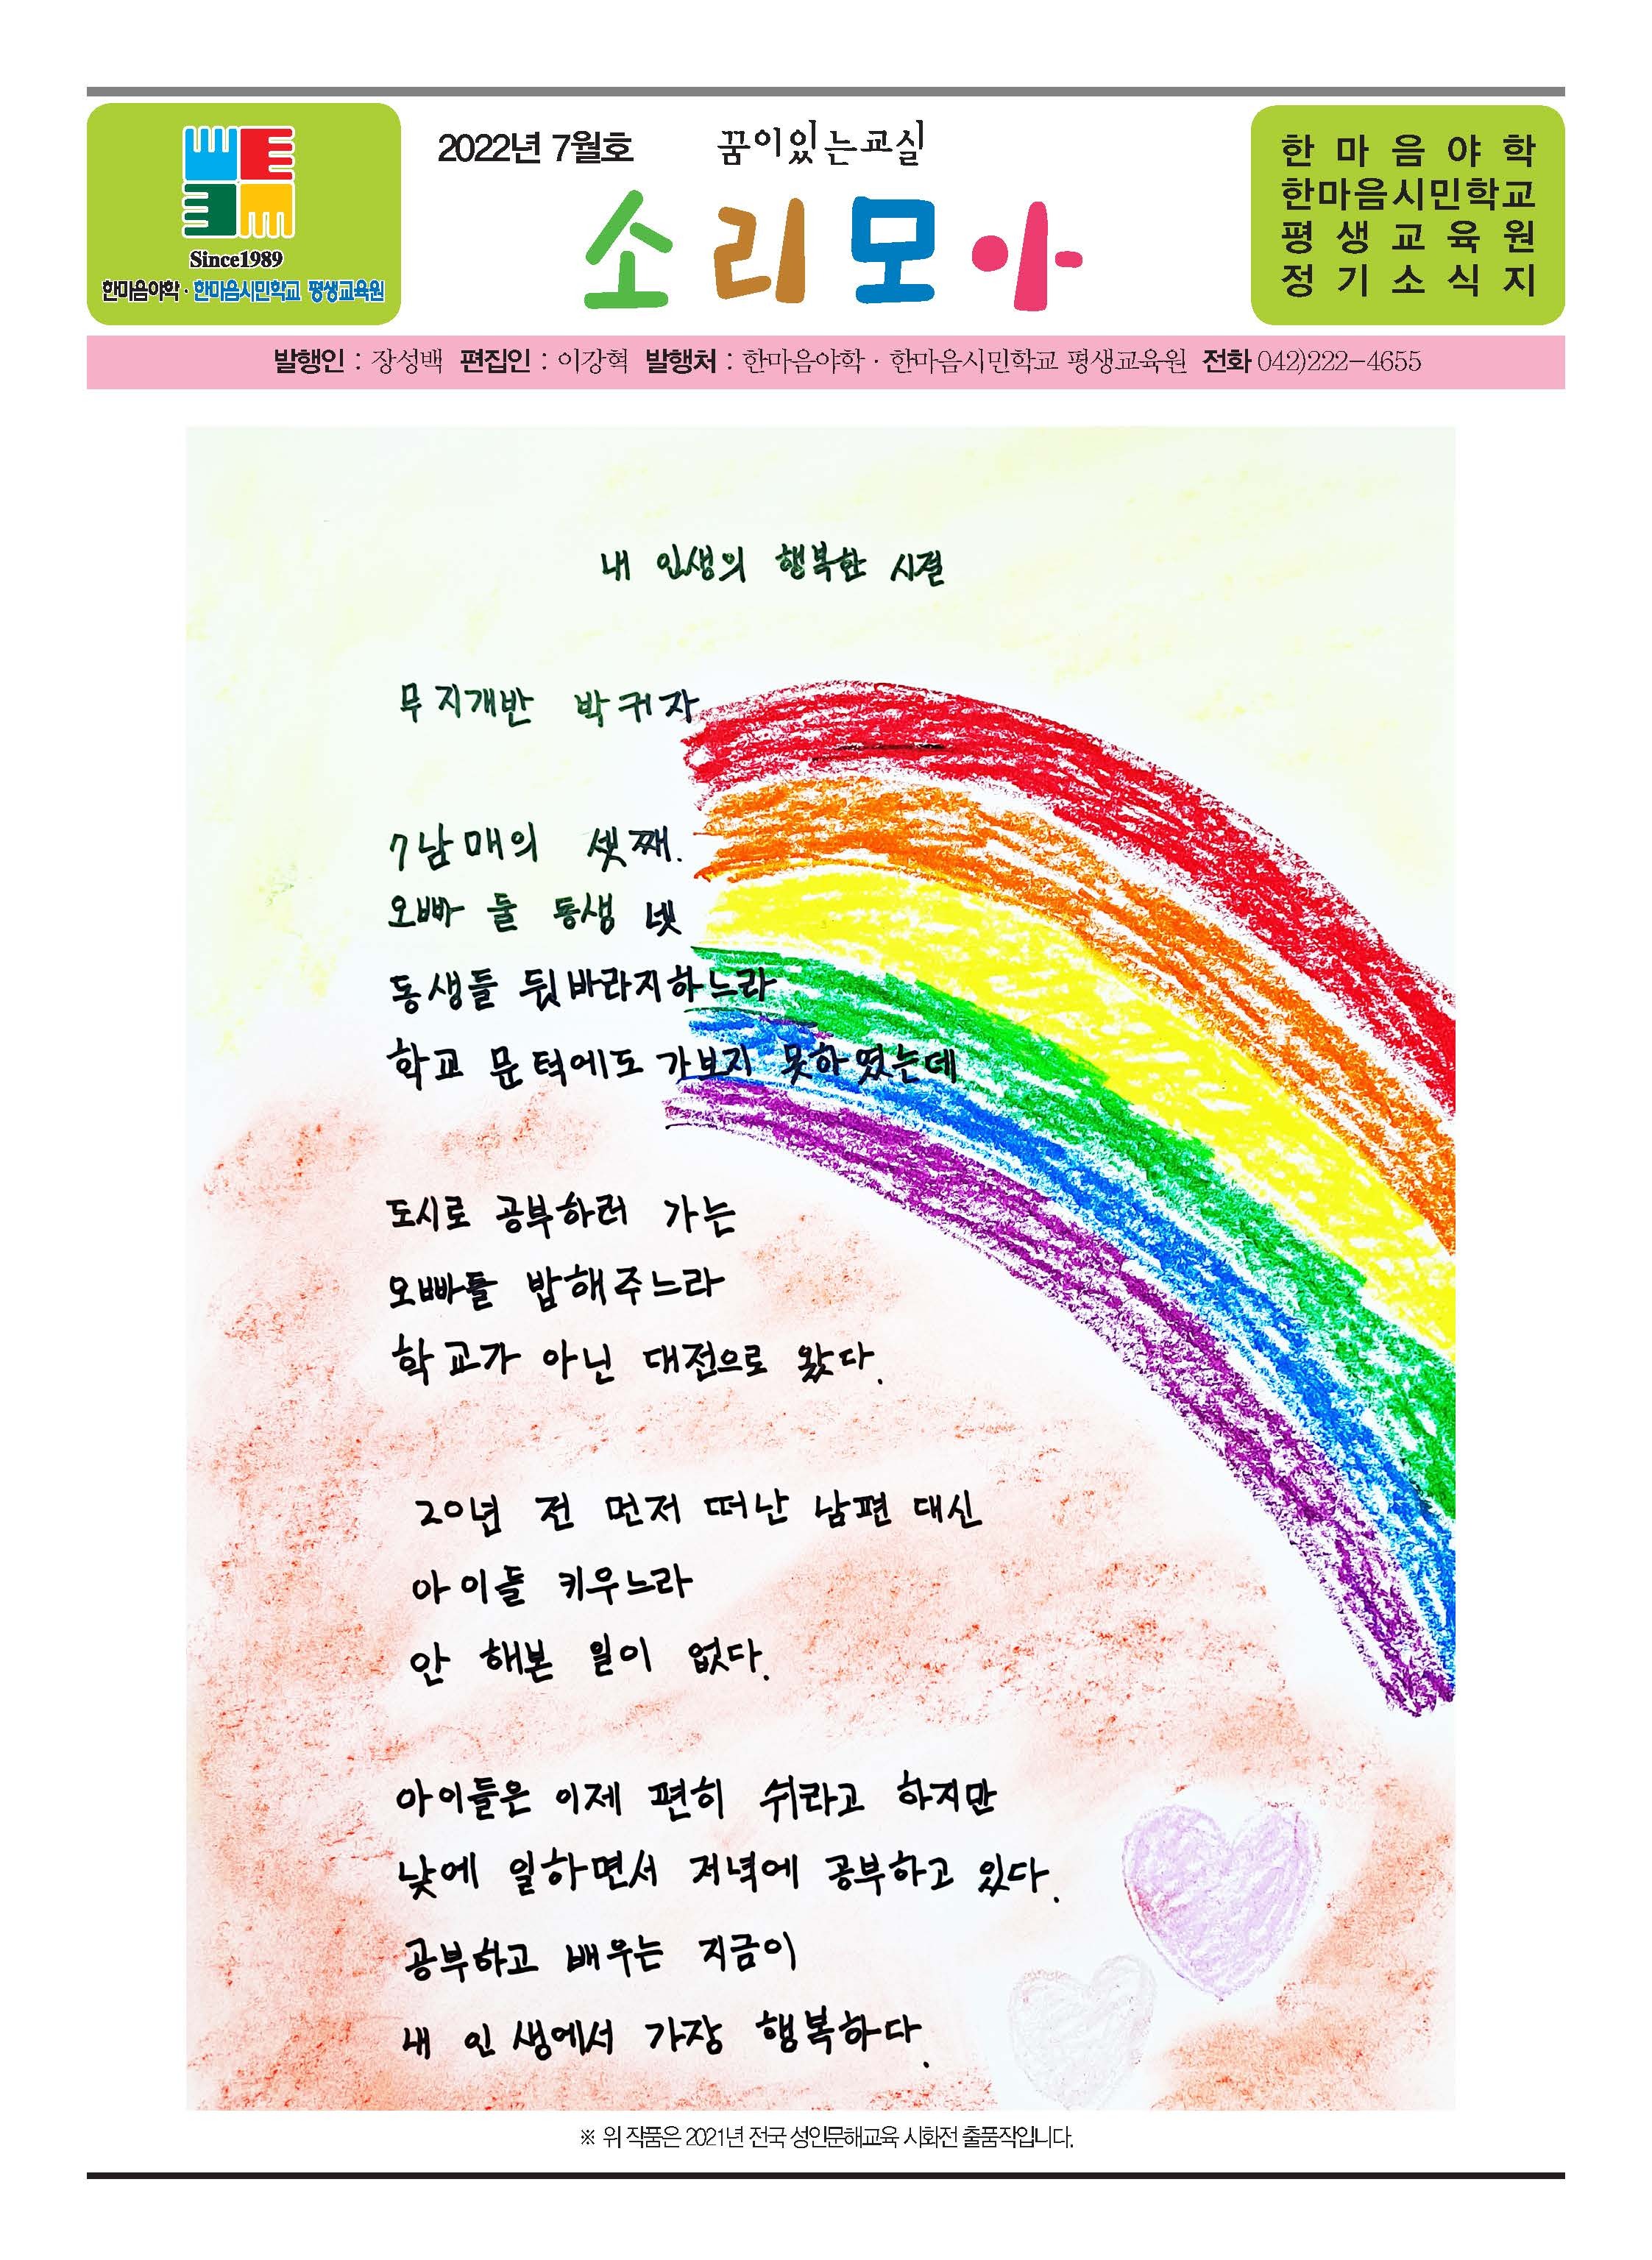 2022년 7월호
꿈이있는교실
소리모아
Since1989
한마음야학 · 한마음시민학교 평생교육원
한마음야학
한마음시민학교
평생교육원
정기소식지
발행인 : 장성백 편집인 : 이강혁 발행처 : 한마음야학 · 한마음시민학교 평생교육원 전화 042)222-4655
내 인생의 행복한 시절
무지개반 박귀자
7남매의 셋째.
오빠 둘 동생 넷
동생들 뒷바라지하느라
학교 문턱에도 가보지 못하였는데
도시로 공부하러 가는
오빠들 밥해주느라
학교가 아닌 대전으로 왔다.
20년 전 먼저 떠난 남편 대신
아이들 키우느라
안 해본 일이 없다.
아이들은 이제 편히 쉬라고 하지만
낮에 일하면서 저녁에 공부하고 있다.
공부하고 배우는 지금이
내 인생에서 가장 행복하다.
※ 위 작품은 2021년 전국 성인문해교육 시화전 출품작입니다.